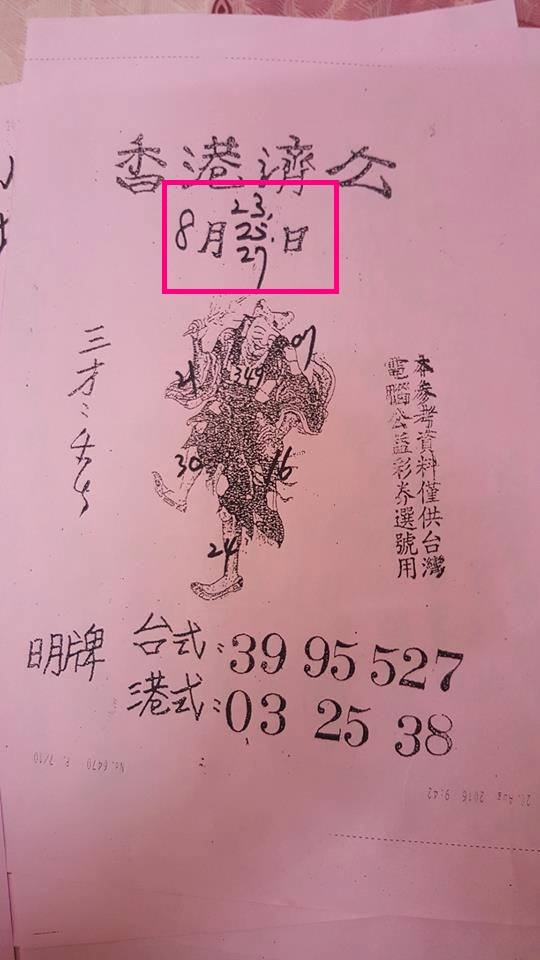 香港濟公
8月 23. 25. 27 日
三才:
本參考資料僅供台灣
電腦公益彩券選號用
21
349
07
30
16
24
明牌 台式: 39 95 527
港式: 03 25 38
No. 6470 P. 7/10
Aug. 2016 9:42